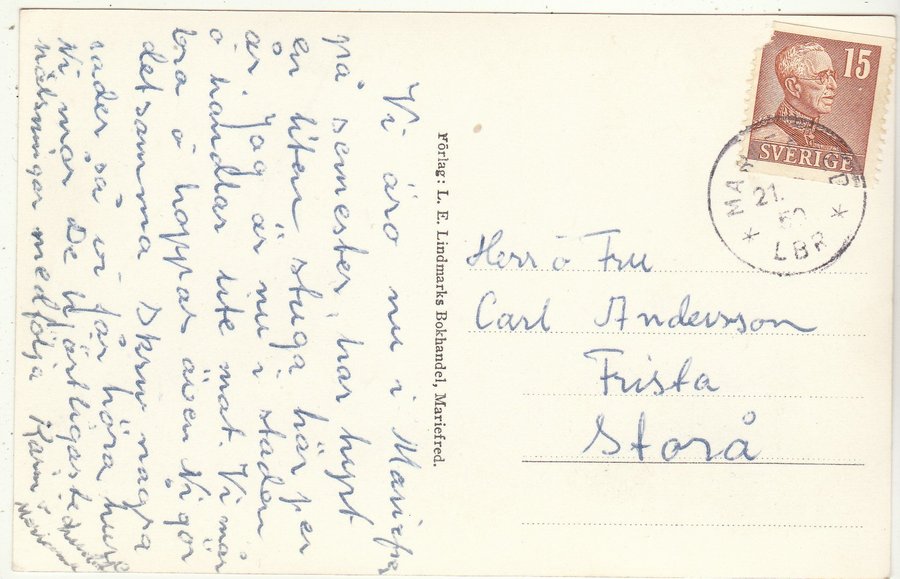 Vi äro nu i Marief
på semester, har hyrt
en liten stuga här per
år. Jag är nu i staden
o handlar lite mat. Vi mår
bra o hoppas även Ni gör
detsamma. Skriv några
rader så vi får höra hur
Ni mår. De hjärtligaste
hälsningar medfölja Karin o
Förlag: L. E. Lindmarks Bokhandel, Mariefred.
15
SVERIGE
21.
LBR
Herr o Fru
Carl Andersson
Frista
Storå